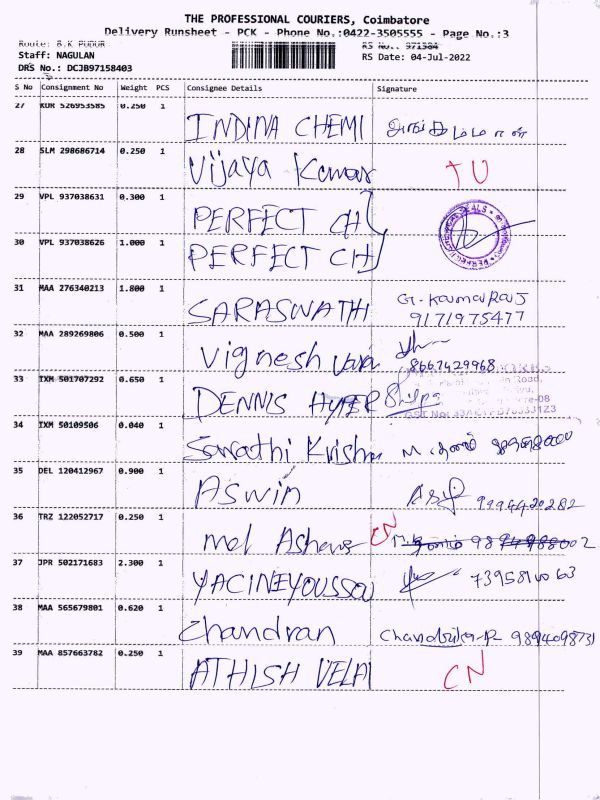 THE PROFESSIONAL COURIERS, Coimbatore
Delivery Runsheet - PCK - Phone No.:0422-3505555 - Page No.:3
Route: B.K PUDUR RS No.: 971584
Staff: NAGULAN RS Date: 04-Jul-2022
DRS No.: DCJB97158403
S No Consignment No Weight PCS Consignee Details Signature
27 KUR 526953585 0.250 1 INDINA CHEMI
28 SLM 298686714 0.250 1 Vijaya Kumar TU
29 VPL 937038631 0.300 1 PERFECT CH
30 VPL 937038626 1.000 1 PERFECT CH
31 MAA 276340213 1.800 1 SARASWATHI G. KumarRaj
9171975477
32 MAA 289269806 0.500 1 Vignesh 8667429968
33 IXM 501707292 0.650 1 DENNIS HYPER Shilpa
34 IXM 50109506 0.040 1 Sarathi Krishn
35 DEL 120412967 0.900 1 ASWIN 9994420282
36 TRZ 122052717 0.250 1 CN
37 JPR 502171683 2.300 1 YACINEYOUSSOU
38 MAA 565679801 0.620 1 Chandran 9894098731
39 MAA 857663782 0.250 1 ATHISH VELA CN